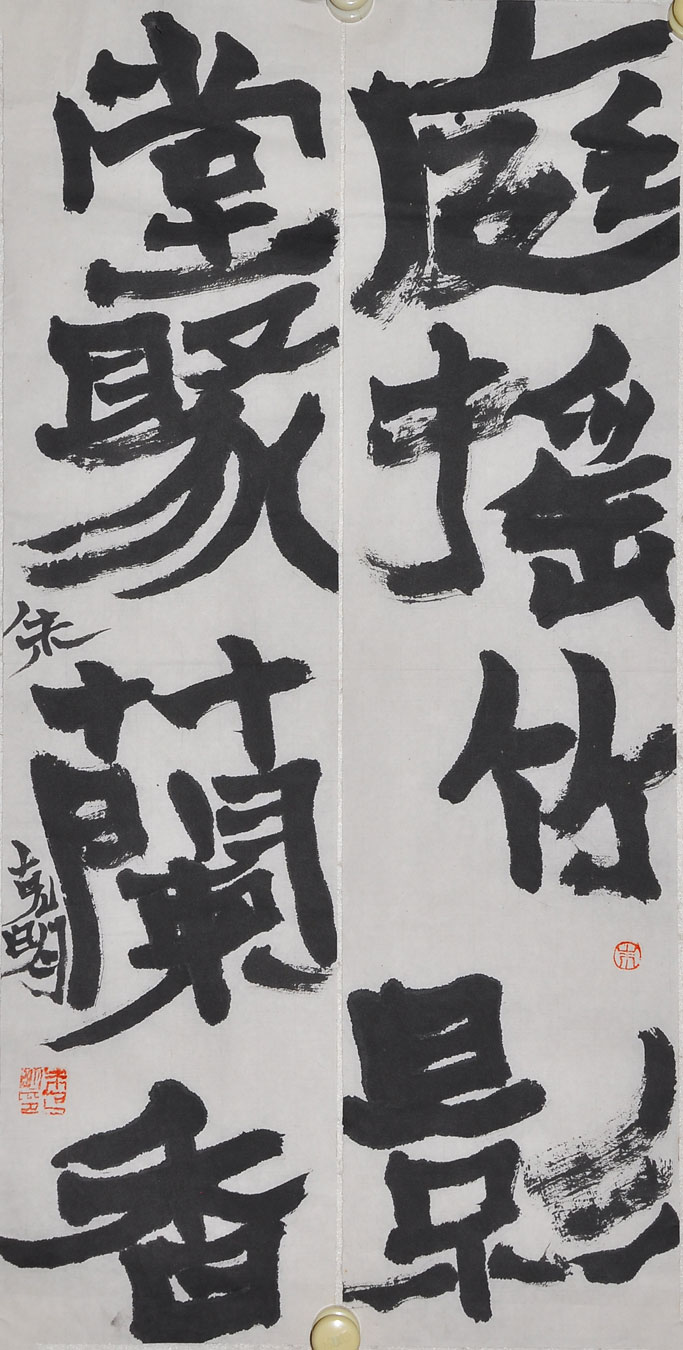 庭摇竹影
堂聚蘭香
朱克明